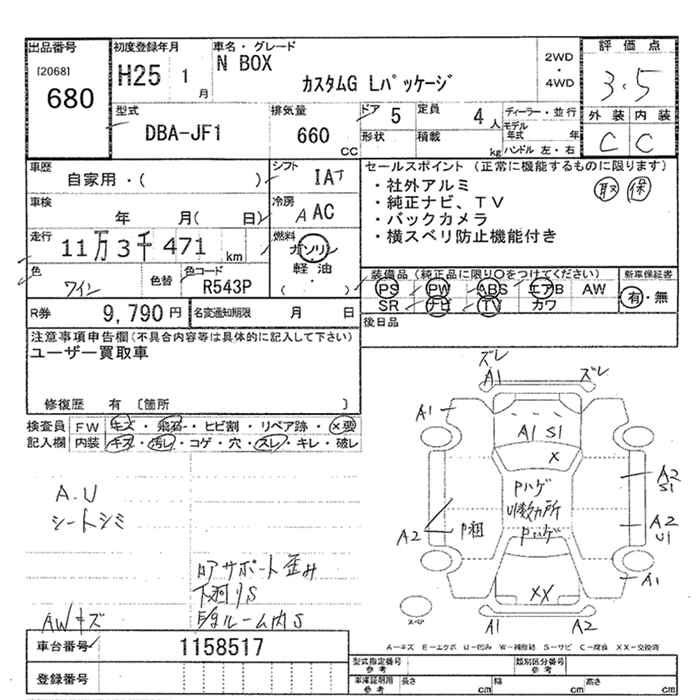 出品番号
[2068]
680
初度登録年月
H25 1月
車名・グレード
N BOX
カスタムG Lパッケージ
2WD
・
4WD
評価点
3.5
外装 内装
C C
型式
DBA-JF1
排気量
660 CC
ドア 5
定員 4人
形状
積載 kg
ディーラー・並行
モデル年式 年
ハンドル 左・右
車歴
自家用・( )
シフト
IAT
車検
年 月( 日)
冷房
A AC
走行
11万3千471 km
燃料
ガソリン
軽油
・
( )
色
ワイン
色替
色コード
R543P
R券 9,790円
名変通知期限 月 日
セールスポイント (正常に機能するものに限ります)
・社外アルミ
・純正ナビ、TV
・バックカメラ
・横スベリ防止機能付き
取 保
装備品(純正品に限り○をつけてください)
PS PW ABS エアB AW
SR ナビ TV カワ
新車保証書
有・無
後日品
注意事項申告欄(不具合内容等は具体的に記入して下さい)
ユーザー買取車
修復歴 有 [箇所 ]
検査員記入欄
FW キズ・飛石・ヒビ割・リペア跡・×要
内装 キズ・汚レ・コゲ・穴・スレ・キレ・破レ
A.U
シートシミ
コアサポート歪み
下廻りS
AWキズ
ルーム内S
ズレ
A1
ズレ
A1
A1 S1
X
Pハゲ
U数カ所
Pハゲ
A2
P粗
A2
S1
A2
U1
A1
XX
スペア
A1
A2
A-キズ E-エクボ U-凹み W-補修跡 S-サビ C-腐食 XX-交換済
車台番号
1158517
登録番号
型式指定番号 参考
類別区分番号 参考
車庫証明用 参考
長さ cm
幅 cm
高さ cm